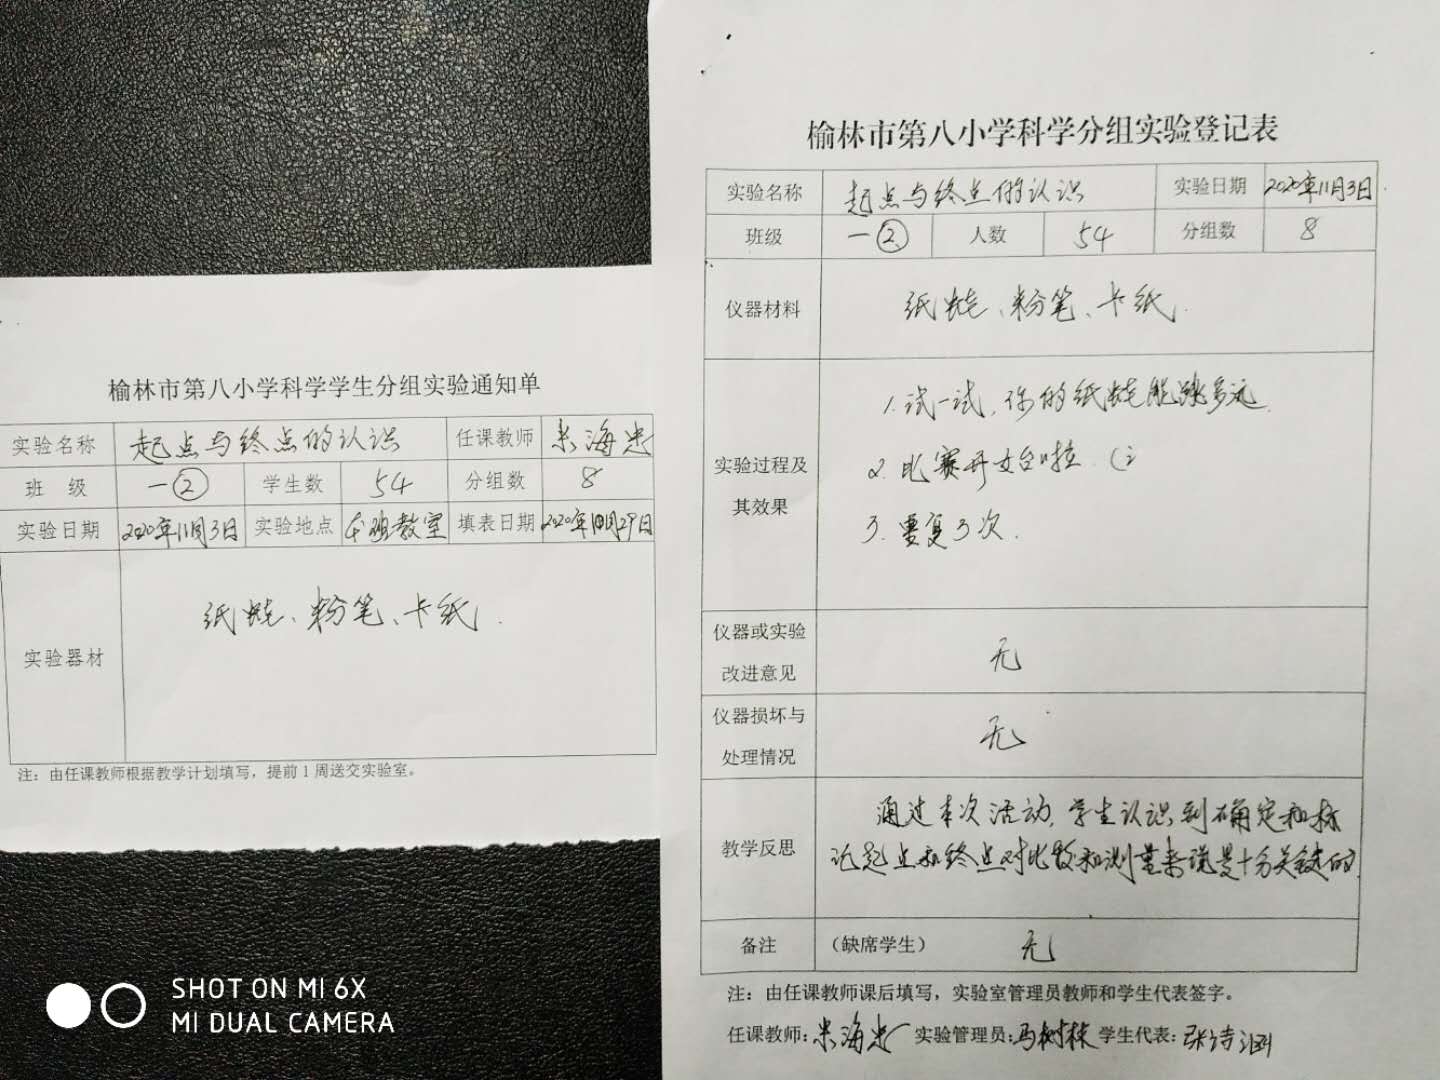 榆林市第八小学科学学生分组实验通知单
实验名称 起点与终点的认识 任课教师 米海忠
班 级 一② 学生数 54 分组数 8
实验日期 2020年11月3日 实验地点 本班教室 填表日期 2020年10月29日
实验器材 纸蛙、粉笔、卡纸.
注：由任课教师根据教学计划填写，提前1周送交实验室。
榆林市第八小学科学分组实验登记表
实验名称 起点与终点的认识 实验日期 2020年11月3日
班级 一② 人数 54 分组数 8
仪器材料 纸蛙、粉笔、卡纸.
实验过程及其效果
1.试一试，你的纸蛙能跳多远.
2.比赛开始啦.
3.重复3次.
仪器或实验改进意见 无
仪器损坏与处理情况 无
教学反思
通过本次活动，学生认识到确定和标
记起点和终点对比较和测量来说是十分关键的.
备注 （缺席学生） 无
注：由任课教师课后填写，实验室管理员教师和学生代表签字。
任课教师：米海忠 实验管理员：马树林 学生代表：张诗涵
SHOT ON MI 6X
MI DUAL CAMERA